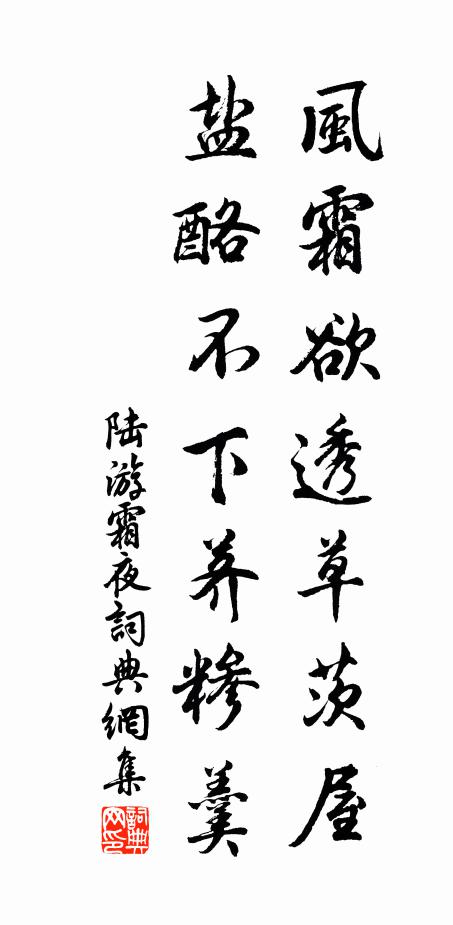 風霜欲透草茨屋
盐酪不下荞糁羹
陆游霜夜詞典網集
詞典网印